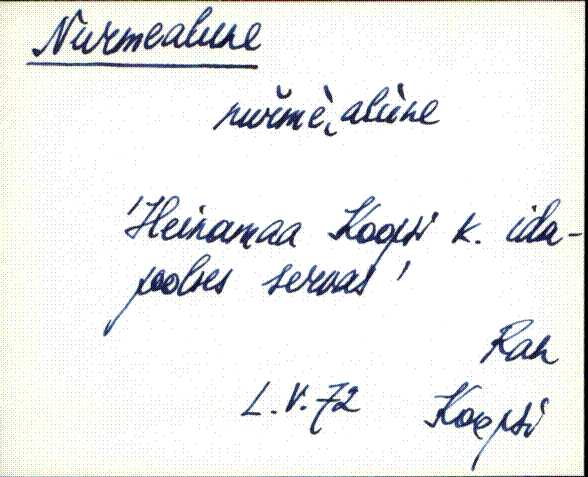 Nurmealune
nuŕmè͔alùne
'Heinamaa Koopsi k. ida-
poolses servas'
Ran
L.V.72 Koopsi